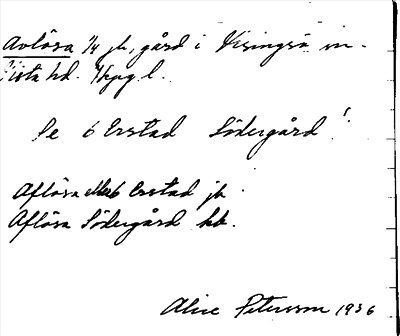 Avlösa 1/4 jb, gård i Visingsö sn.
Vista hd. Jkpg l.
Se 6 Erstad Södergård!
Aflösa Erstad jb
Aflösa Södergård hb.
Alice Petersson 1936